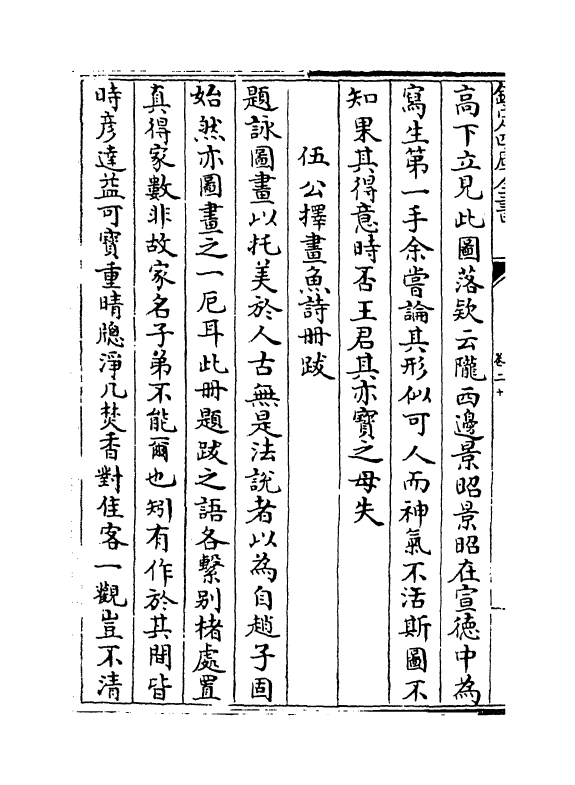 欽定四庫全書
卷二十
高下立見此圖落欵云隴西邊景昭景昭在宣徳中為
寫生第一手余嘗論其形似可人而神氣不活斯圖不
知果其得意時否王君其亦寳之毋失
伍公擇畫魚詩册跋
題詠圖畫以托美於人古無是法說者以為自趙子固
始然亦圖畫之一厄耳此册題跋之語各繫别楮處置
真得家數非故家名子弟不能爾也矧有作於其間皆
時彦達益可寳重晴牕淨几焚香對佳客一觀豈不清